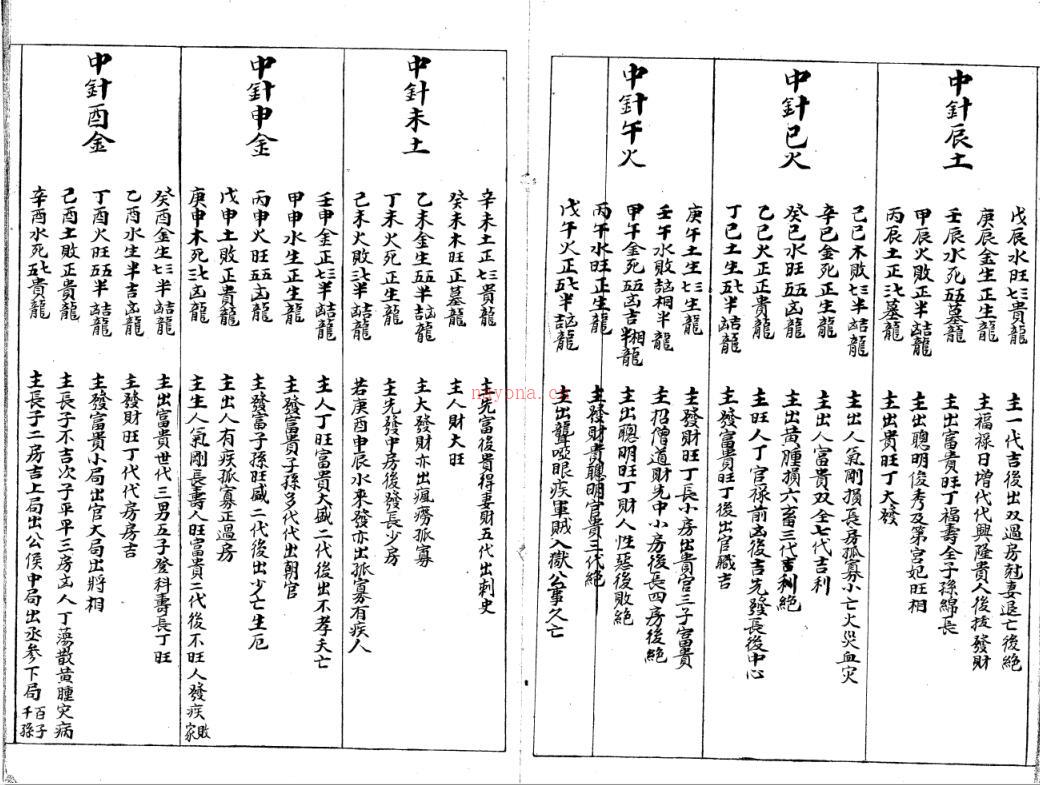 中針辰土
戊辰水旺七三貴龍 主一代吉後出双過房尅妻退亡後絕
庚辰金生正生龍 主福禄日增代代興隆貴人後抜發財
壬辰水死五五墓龍 主出富貴旺丁福壽全子孫綿長
甲辰火敗正半龍 主出聰明俊秀及第宮妃旺相
丙辰土正三七墓龍 主出貴旺丁大發
中針巳火
己巳木敗七三半龍 主出人氣剛損長房孤寡小亡火災血灾
辛巳金死正生龍 主出人富貴双全七代吉利
癸巳水旺五五凶龍 主出黄腫損六畜三代吉利絕
乙巳火正正貴龍 主旺人丁官禄前凶後吉先發長後中心
丁巳土生五七半龍 主發富貴旺丁後出官職吉
中針午火
庚午土生七三生龍 主發財旺丁長小房出貴官三子富貴
壬午水敗相半龍 主招僧道財先中小房後長四房後絕
甲午金死五五凶吉半相龍 主出聰明旺丁財人性惡後敗絕
丙午水旺正生龍 主發財貴聰明官貴三代絕
戊午火正五七半龍 主出聾啞眼疾軍賊入獄公事久亡
中針未土
辛未土正七三貴龍 主先富後貴得妻財五代出刺史
癸未木旺正墓龍 主人財大旺
乙未金生五五半龍 主大發財亦出瘋癆孤寡
丁未火死正生龍 主先發中房後發長少房
己未火敗三七半龍 若庚酉申辰水來發亦出孤寡有疾人
中針申金
壬申金正七三半龍 主人丁旺富貴大盛二代後出不孝夫亡
甲申水生正生龍 主發富貴子孫多代代出朝官
丙申火旺五五凶龍 主發富子孫旺盛二代後出少亡生厄
戊申土敗正貴龍 主出人有疾孤寡正過房
庚申木死三七凶龍 主生人氣剛長壽人旺富貴三代後不旺人發疾敗家
中針酉金
癸酉金生七三半龍 主出富貴世代三男五子登科壽長丁旺
乙酉水生半吉凶龍 主發財旺丁代代房房吉
丁酉火旺五五半龍 主發富貴小局出官大局出將相
己酉土敗正貴龍 主長子不吉次子平平三房出人丁蕩散黄腫灾病
辛酉水死五七貴龍 主長子二房吉上局出公侯中局出丞参下局百子千孫
nayona.cn